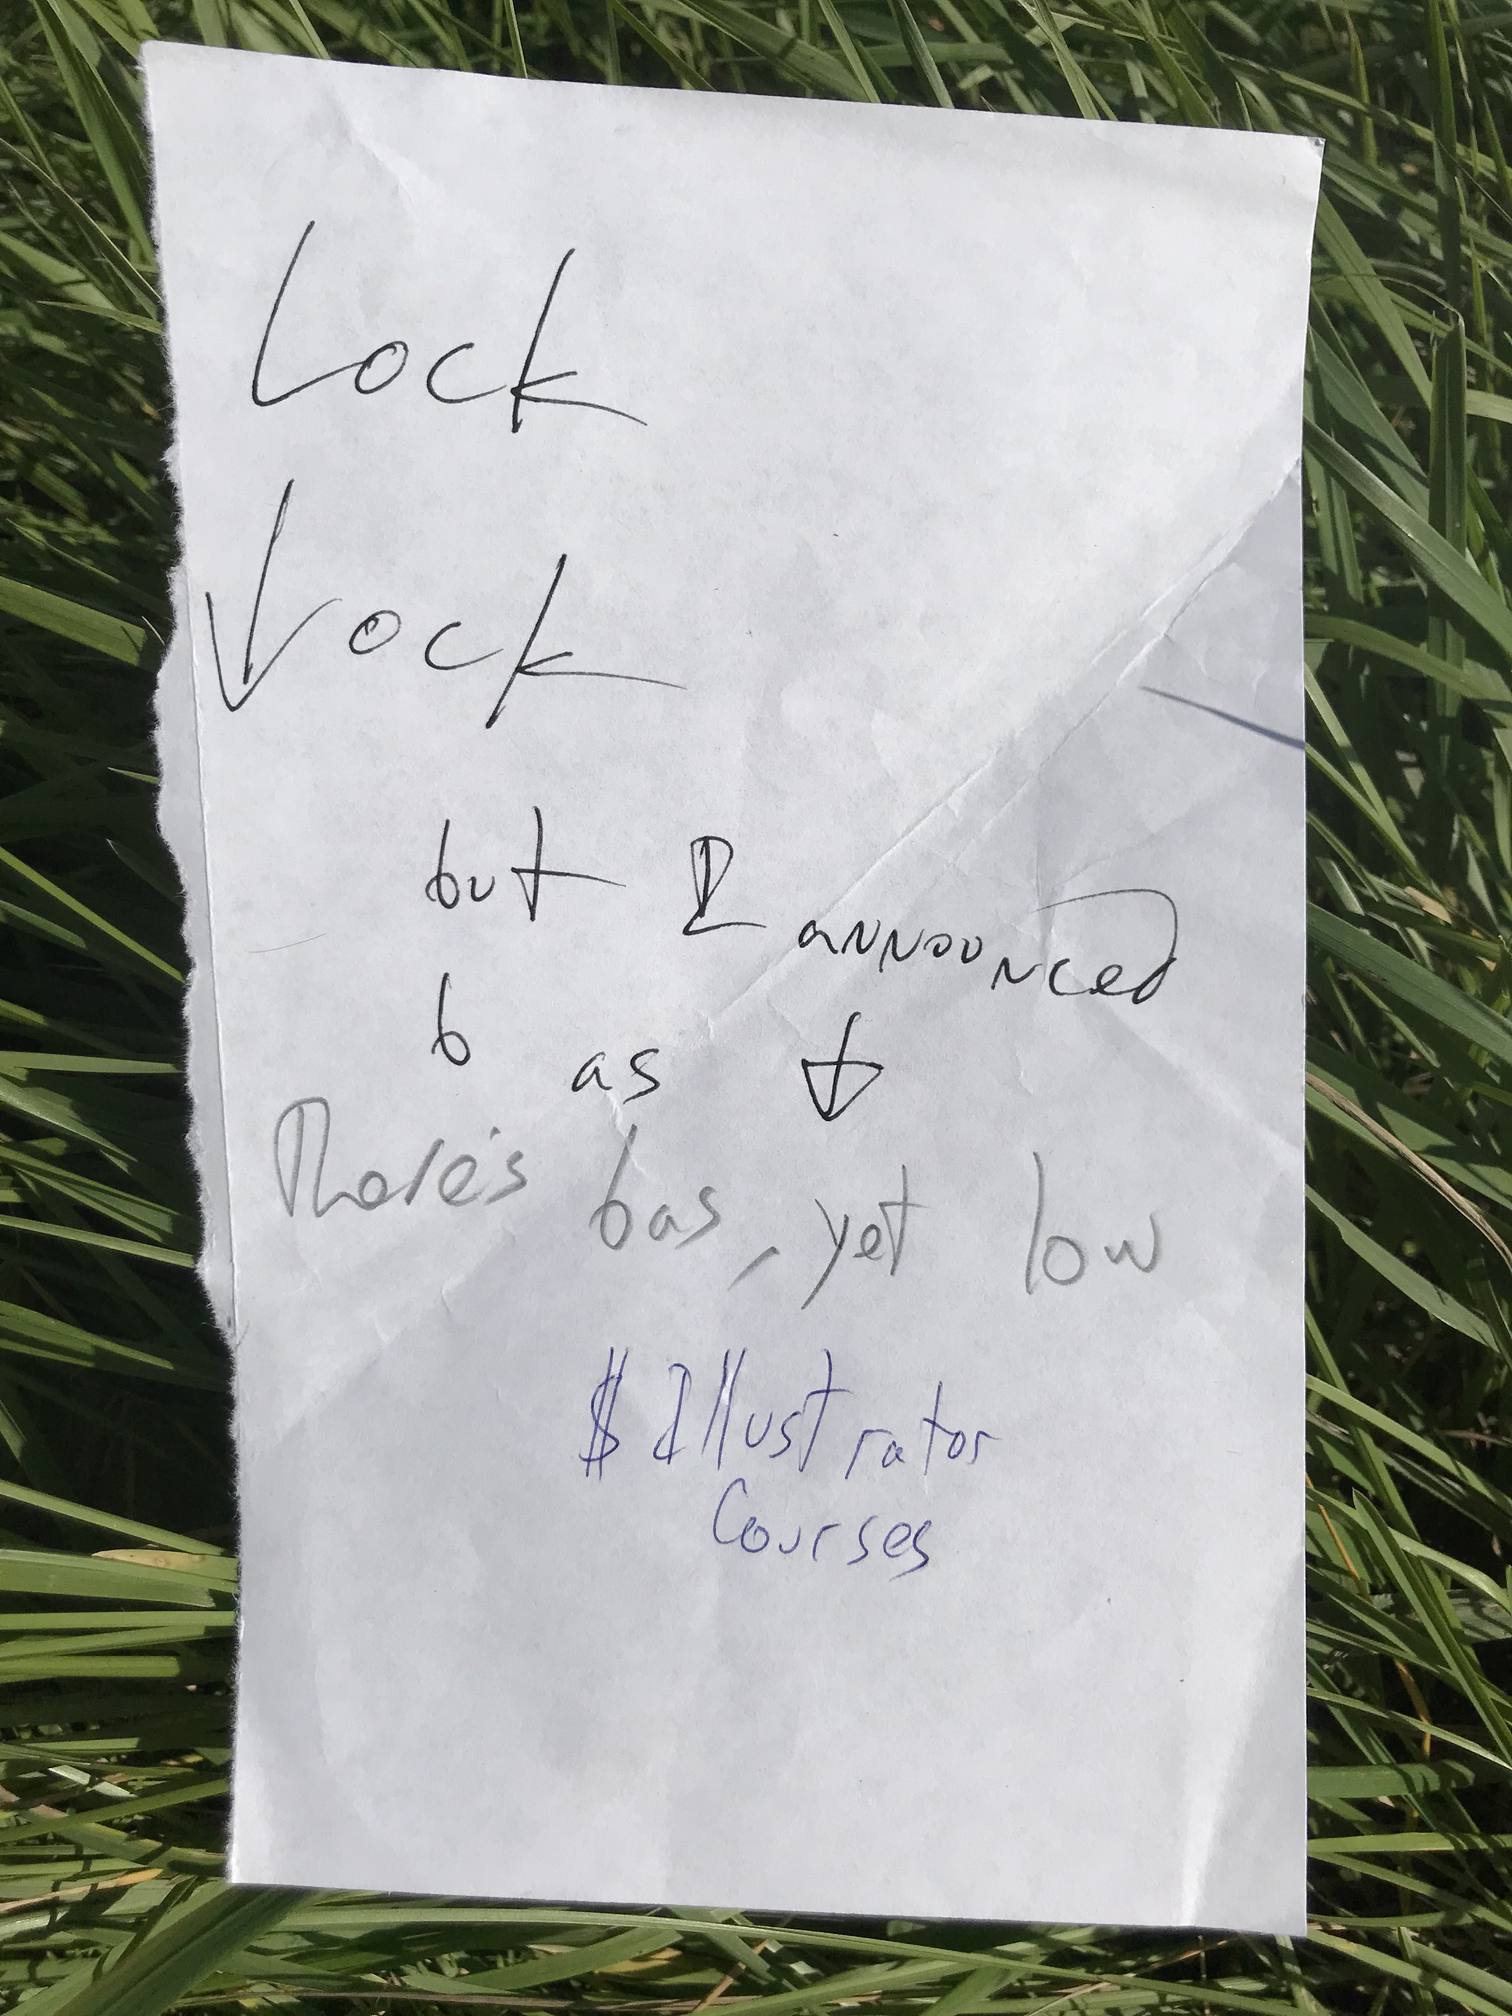 Lock
Vock
but I announced
b as ↓
There's bas, yet low
$ Illustrator
Courses